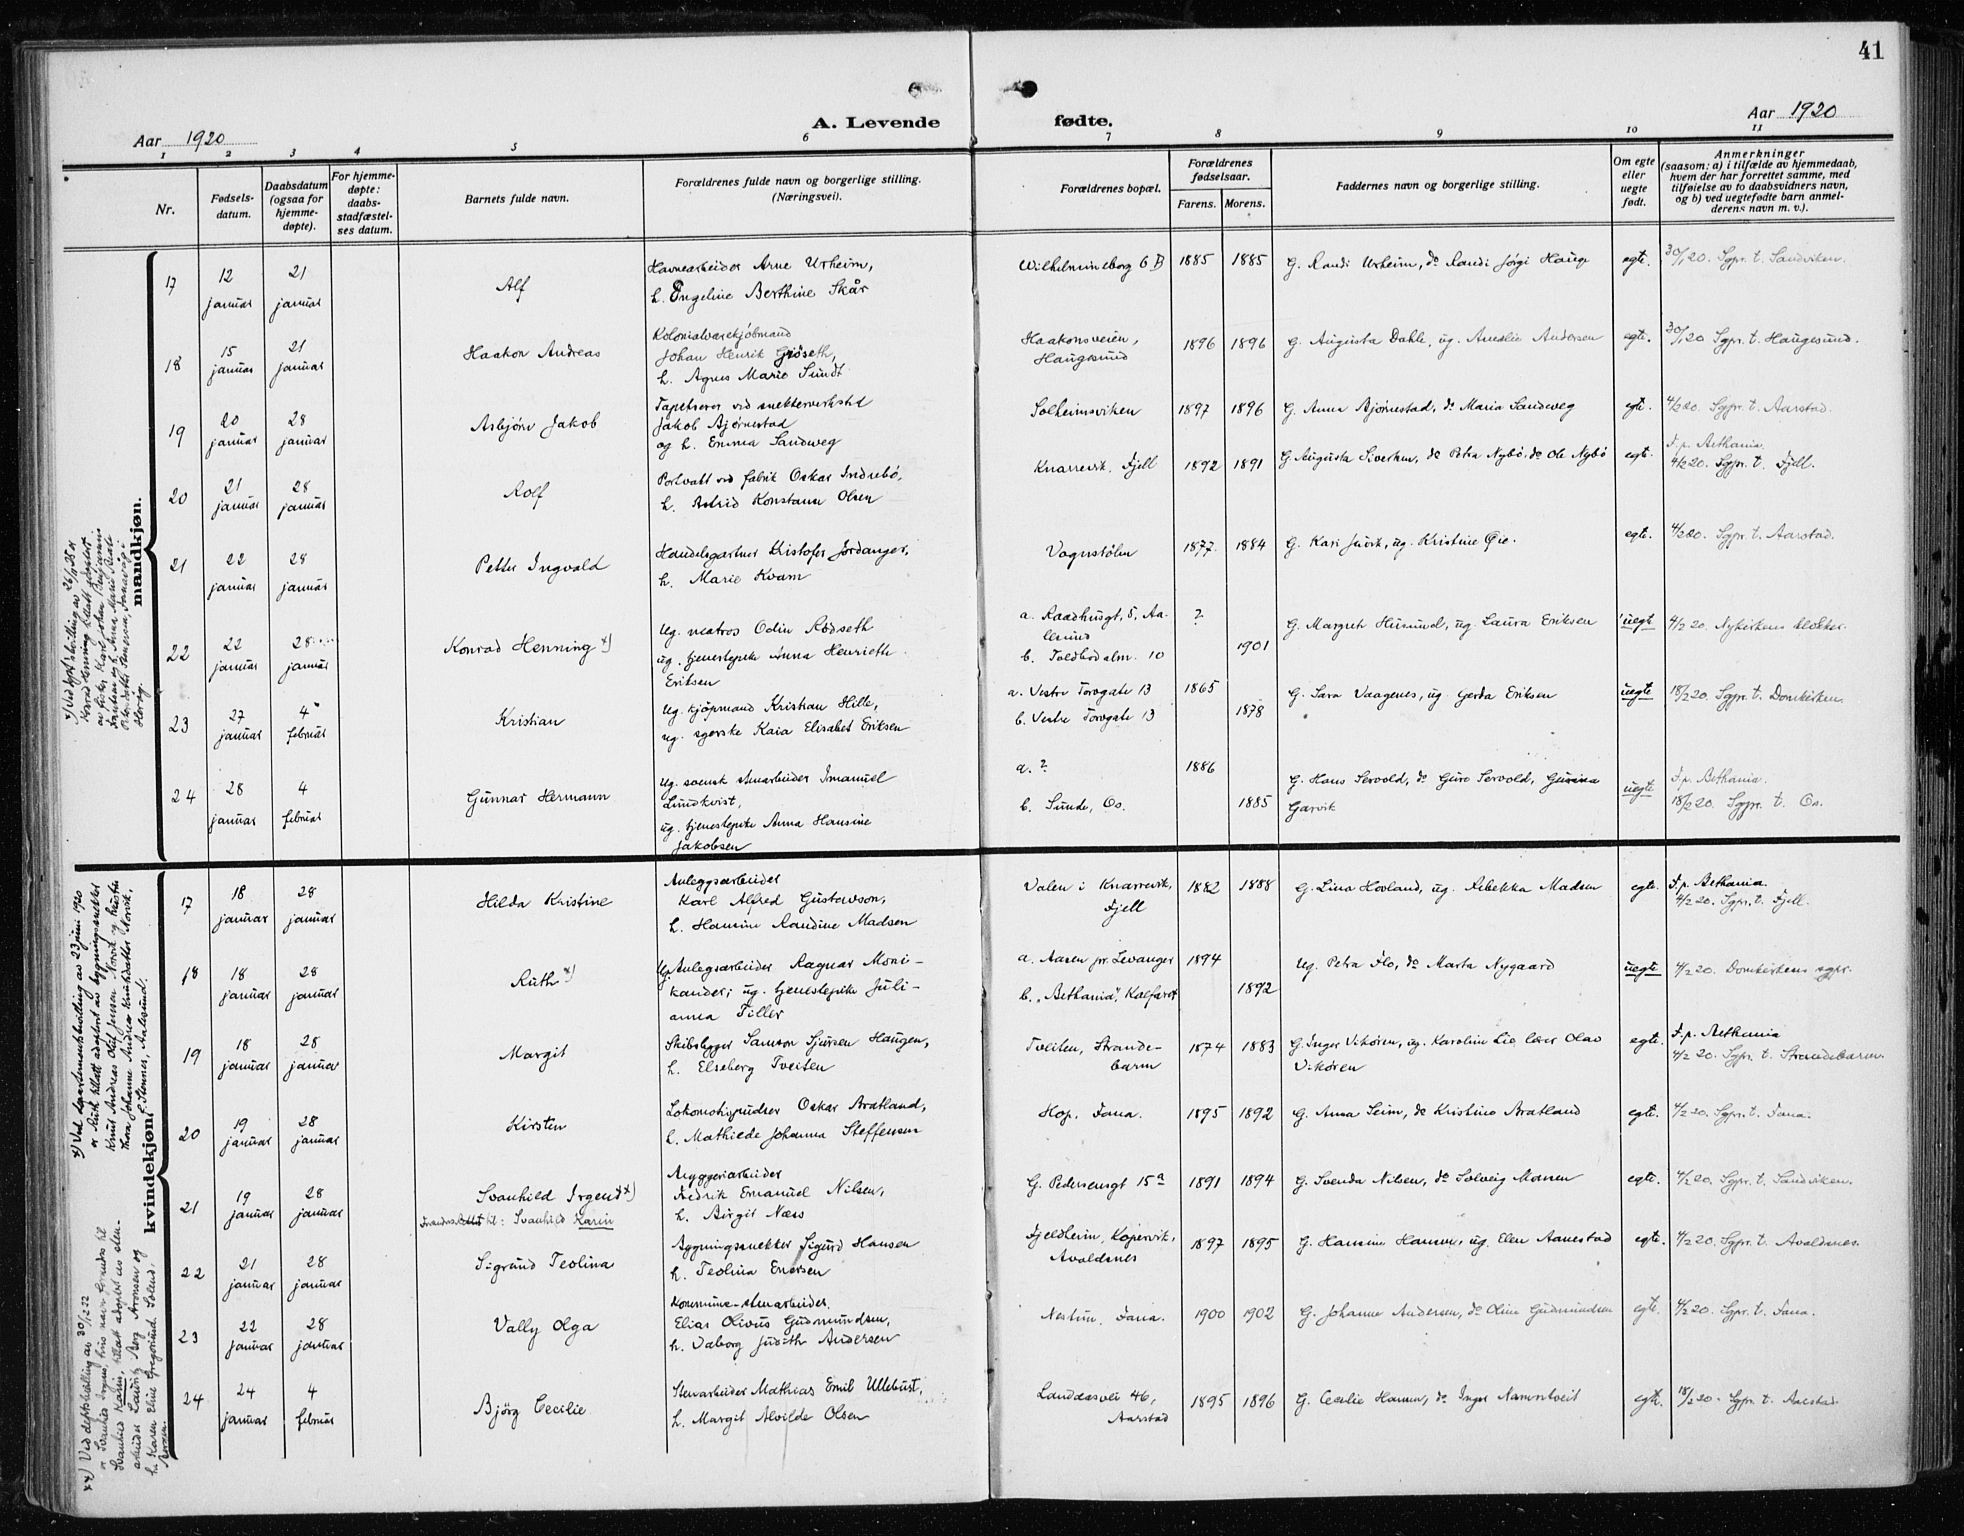 41
Aar 1920
A. Levende fødte.
Aar 1920
1 2 3 4 5 6 7 8 9 10 11
Nr.
Fødsels-
datum.
Daabsdatum
(ogsaa for
hjemme-
døpte).
For hjemme-
døpte:
daabs-
stadfæstel-
ses datum.
Barnets fulde navn.
Forældrenes fulde navn og borgerlige stilling.
(Næringsvei).
Forældrenes bopæl.
Forældrenes
fødselsaar.
Farens. Morens.
Faddernes navn og borgerlige stilling.
Om egte
eller
uegte
født.
Anmerkninger
(saasom: a) i tilfælde av hjemmedaab,
hvem der har forrettet samme, med
tilføielse av to daabsvidners navn,
og b) ved uegtefødte barn anmel-
derens navn m. v.).
mandkjøn.
17
12 januar
21 januar
Alf
Havnearbeider Arne Urheim,
h. Engeline Berthine Skår
Wilhelmineborg 6 B
1885 1885
G. Randi Urheim, do Randi Jørgi Hauge
egte.
30/1 20. Sgpr. t. Sandviken.
18
15 januar
21 januar
Haakon Andreas
Kolonialvarekjøbmand
Johan Henrik Grøseth,
h. Agnes Marie Sundt
Haakonsveien,
Haugesund
1896 1896
G. Augusta Dahle, ug. Amalie Andersen
egte.
30/1 20. Sgpr. t. Haugesund.
19
20 januar
28 januar
Asbjørn Jakob
Tapetserer ved snekkerverksted
Jakob Bjørnestad
og h. Emma Sandweg
Solheimsviken
1897 1896
G. Anna Bjørnestad, do Maria Sandweg
egte.
4/2 20. Sgpr. t. Aarstad.
20
21 januar
28 januar
Rolf
Portvakt ved fabrik Oskar Indrebø,
h. Astrid Konstanse Olsen
Knarrevik, Fjell
1892 1891
G. Augusta Sivertsen, do Petra Nybø, do Ole Nybø
egte.
F. p. Bethania.
4/2 20. Sgpr. t. Fjell.
21
22 januar
28 januar
Petter Ingvald
Handelsgartner Kristofer Jordanger,
h. Marie Kvam
Vognstølen
1877. 1884
G. Kari , ug. Kristine Øie.
egte.
4/2 20. Sgpr. t. Aarstad.
22
22 januar
28 januar
Konrad Henning x)
Ug. matros Odin Rødseth
ug. tjenestepike Anna Henriette
Eriksen
a. Raadhusgt. 5, Aa-
lesund
b. Toldbodalm. 10
?
1901
G. Margreth Husund, ug. Laura Eriksen
uegte
4/2 20. Nykirkens klokker.
23
27 januar
4 februar
Kristian
Ug. kjøpmand Kristian Hille,
ug. syerske Kaia Elisabet Eriksen
a. Vestre Torvgate 13
b. Vestre Torvgate 13
1865
1878
G. Sara Vaagenes, ug. Gerda Eriksen
uegte
18/2 20. Sgpr. t. Domkirken.
24
28 januar
4 februar
Gunnar Hermann
Ug. svensk stenarbeider Imanuel
Lundkvist,
ug. tjenestepike Anna Hansine
Jakobsen
a. ?
b. Sunde, Os.
1886
1885
G. Hans Servold, do Guro Servold, Gurina
Garvik
uegte
F. p. Bethania.
18/2 20. Sgpr. t. Os.
x) Ved dept.s bevilling av 26/11 25 er
Konrad Henning tillatt adoptert
av fisker Karl Johan Benjaminsen
kvindekjøn.
17
18 januar
28 januar
Hilda Kristine
Anleggsarbeider
Karl Alfred Gustavson,
h. Hansine Randine Madsen
Valen i Knarrevik,
Fjell
1882 1888
G. Lina Hovland, ug. Rebekka Madsen
egte.
F. p. Bethania.
4/2 20. Sgpr. t. Fjell.
18
18 januar
28 januar
Ruth x)
Ug. Anlegsarbeider Ragnar Moni-
kander; ug. tjenestepike Juli-
anna Tiller
a. Aasen pr. Levanger
b. "Bethania", Kalfaret
1894
1892
Ug. Petra Flo, do Marta Nygaard
uegte
4/2 20. Domkirkens sgpr.
19
18 januar
28 januar
Margit
Skibsbygger Samson Sjursen Haugen,
h. Elseberg Tveiten
Tveiten, Strande-
barm
1874 1883
G. Inger Vikøren, ug. Karoline Lie, lærer Olav
Vikøren
egte.
F. p. Bethania
4/2 20. Sgpr. t. Strandebarm.
20
19 januar
28 januar
Kirsten
Lokomotivpudser Oskar Bratland,
h. Mathilde Johanna Steffensen
Hop, Fana.
1895 1892
G. Anna Seim, do Kristine Bratland
egte.
4/2 20. Sgpr. t. Fana.
21
19 januar
28 januar
Svanhild Irgens xx)
Forandret til: Svanhild Karin
Bryggeriarbeider
Fredrik Emanuel Nilsen,
h. Birgit Næss
G. Pedersensgt 15 a
1891 1894
G. Svenda Nilsen, do Solveig Monsen
egte.
4/2 20. Sgpr. t. Sandviken.
22
21 januar
28 januar
Sigrund Teolina
Bygningssnekker Sigurd Hansen
h. Teolina Enersen
Fjeldheim, Kopervik,
Avaldsnes
1897 1895
G. Hansine Hansen, ug. Elen Aanestad
egte.
4/2 20. Sgpr. t. Avaldsnes.
23
22 januar
28 januar
Vally Olga
Kommune-stenarbeider.
Elias Olivus Gudmundsen,
h. Valborg Judith Andersen
Nestun, Fana.
1900 1902
G. Johanne Andersen, do Oline Gudmundsen
egte.
4/2 20. Sgpr. t. Fana.
24
24 januar
4 februar
Bjørg Cecilie
Stenarbeider Mathias Emil Ullebust,
h. Margit Alvilde Olsen
Landaasvei 46,
Aarstad
1895 1896
G. Cecilie Hansen, do Inger Namntveit
egte.
18/2 20. Sgpr. t. Aarstad.
x) Ved departementsbevilling av 23 juni 1920
er Ruth tillatt adoptert av bygningssnekker
Knut Andreas Olai Jensen Norvik og hustru
Thora Johanne Andrea Knutsdatter Norvik,
Stennes, Aalesund.
xx) Ved deptsbevilling av 30/12 22
er Svanhild Irgens, hvis navn endres til
Svanhild Karin, tillatt adoptert av sten-
arbeider Lauritz Berg Aronsen og
h. Karen Eline Gregoriusd. Solend.